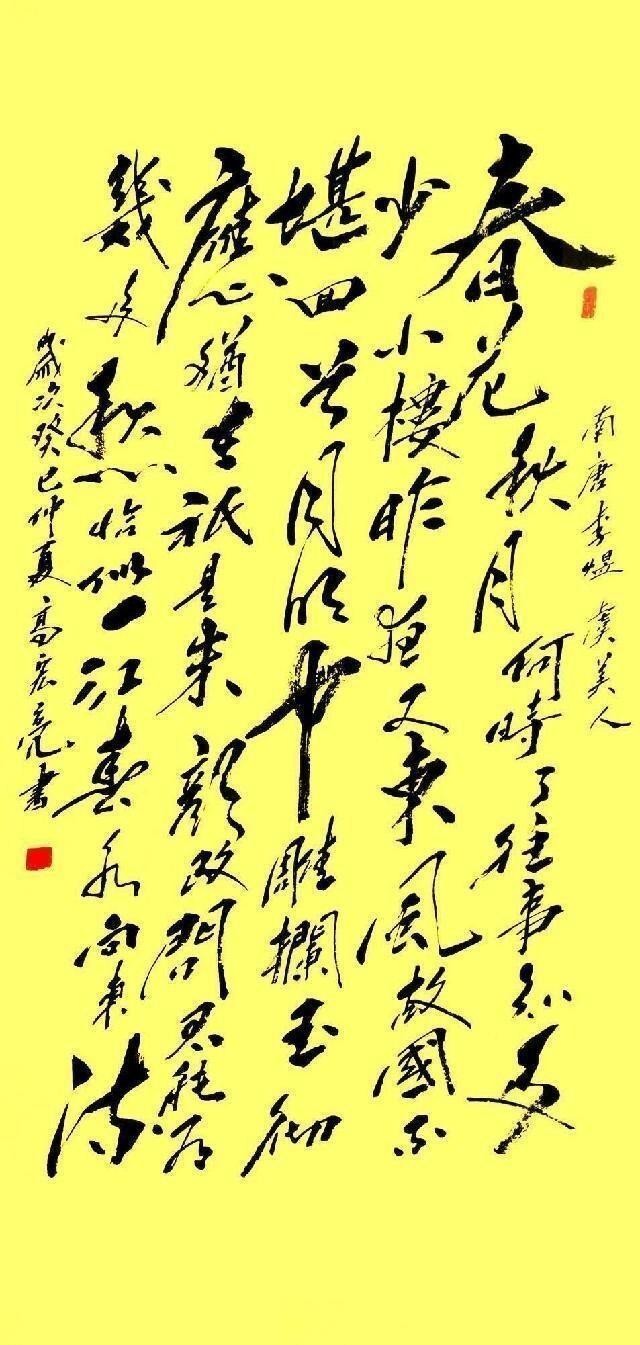 南唐李煜 虞美人
春花秋月何時了往事知多
少小樓昨夜又東風故國不
堪回首月明中雕欄玉砌
應猶在祇是朱顏改問君能有
幾多愁恰似一江春水向東流
歲次癸巳仲夏高宏亮書